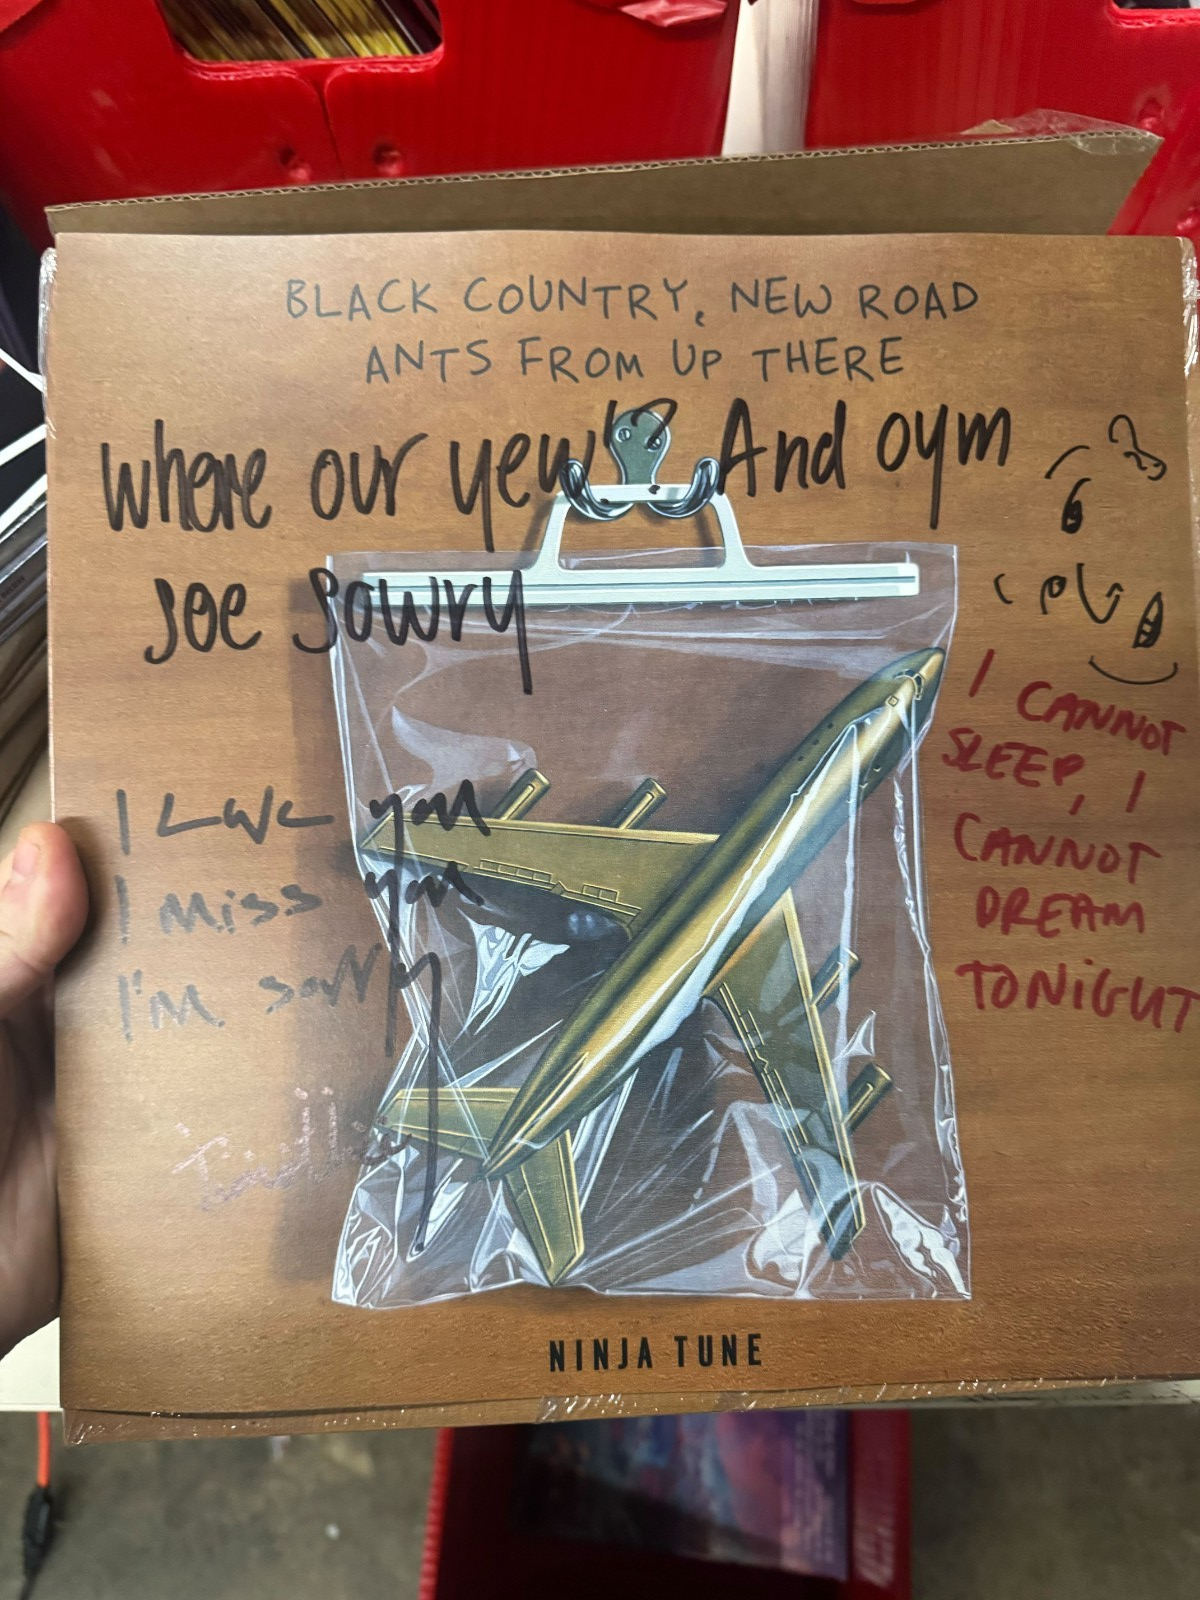 BLACK COUNTRY, NEW ROAD
ANTS FROM UP THERE
where our yew!? And oym
Joe Sowry
I CANNOT
SLEEP, I
CANNOT
DREAM
TONIGHT
I LOVE you
I miss you
I'm sorry
NINJA TUNE